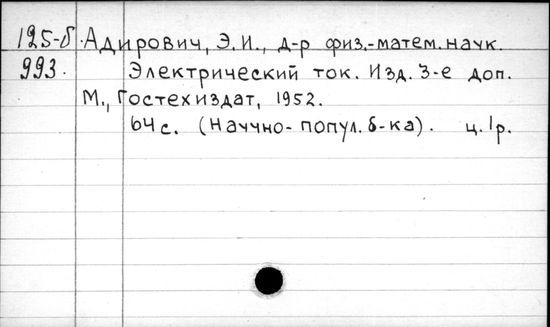 125-б Адирович, Э. И., д-р физ.-матем. наук.
993. Электрический ток. Изд. 3-е доп.
М., Гостехиздат, 1952.
64 с. (Научно-попул. б-ка). ц. 1 р.